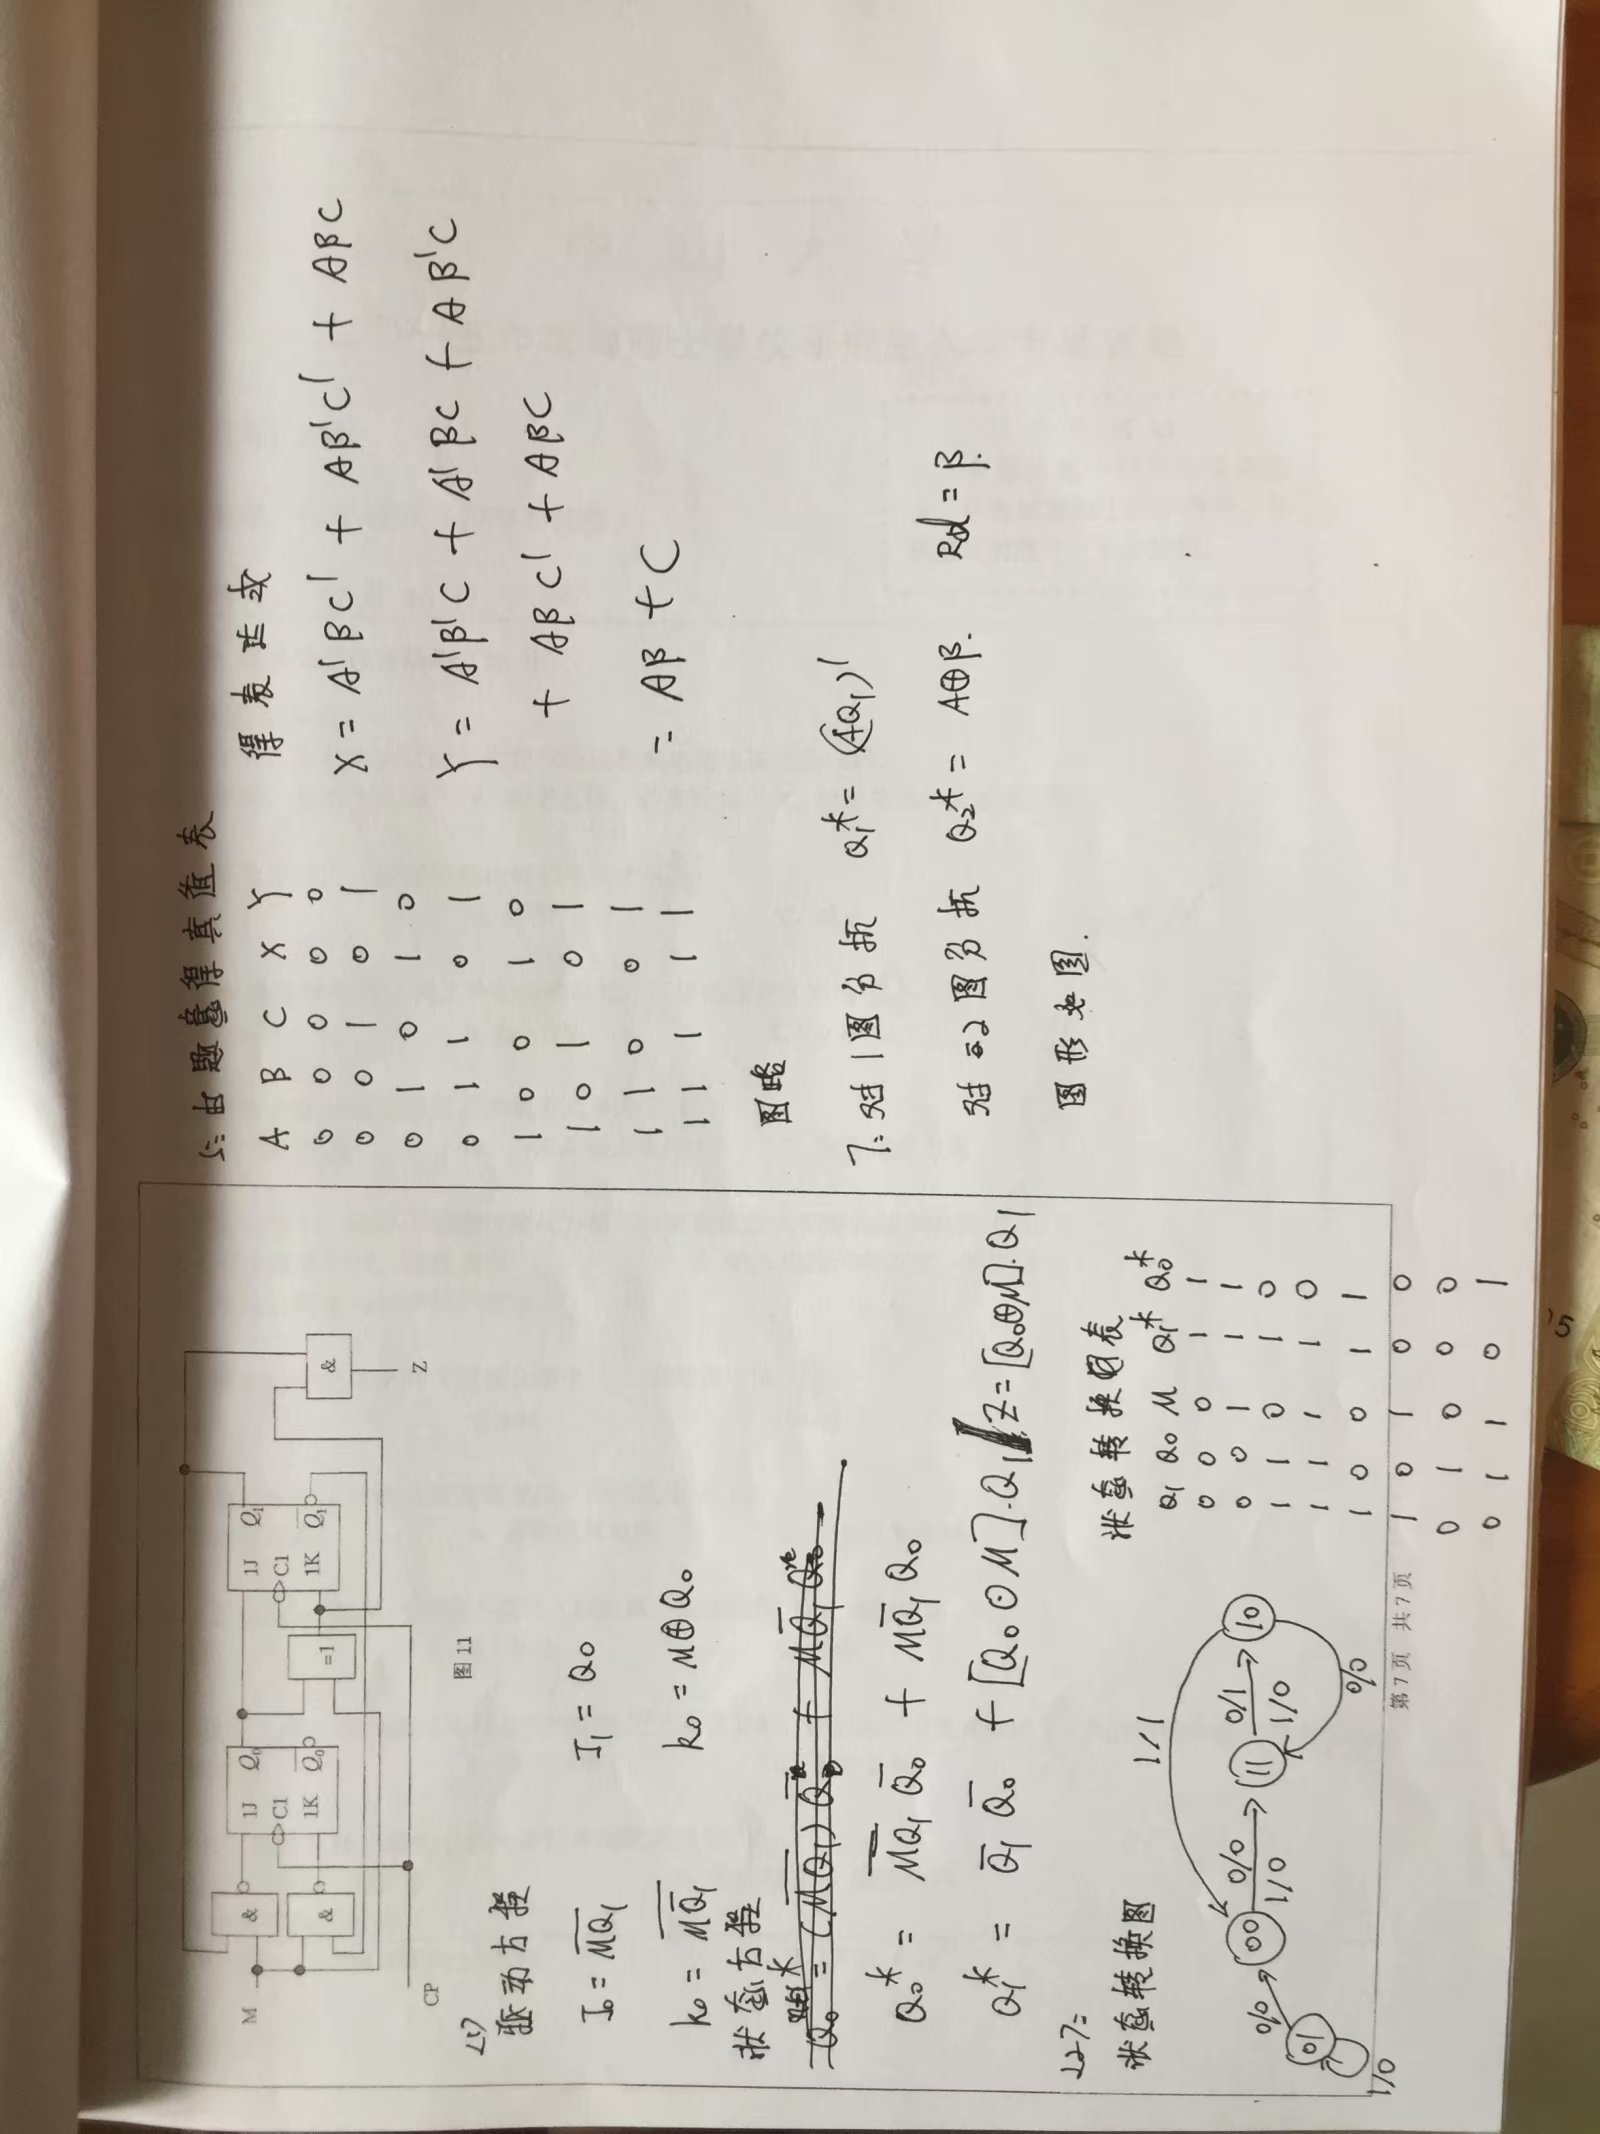 M
CP
&
&
1J
C1
1K
Q0
Q̅0
=1
1J
C1
1K
Q1
Q̅1
&
Z
图 11
<1>
驱动方程
J0 = \overline{MQ1}    J1 = Q0
k0 = \overline{M\overline{Q1}}    k0 = M⊕Q0
状态方程
Q0* = \overline{MQ1} \overline{Q0} + M\overline{Q1}Q0
Q1* = \overline{Q1} \overline{Q0} + [Q0⊙M]·Q1  Z=[Q0⊕M]·Q1
<2>:
状态转换图
1/0
0/0
10
00
0/0
1/0
11
0/1
1/0
10
0/0
1/1
状态转换图表
Q1 Q0 M Q1* Q0*
0 0 0 1 1
0 0 1 1 1
1 1 0 1 0
1 1 1 1 0
1 0 0 1 1
1 0 1 0 0
0 1 0 0 0
0 1 1 0 1
第 7 页 共 7 页
5: 由题意得真值表
A B C X Y
0 0 0 0 0
0 0 1 0 1
0 1 0 1 0
0 1 1 0 1
1 0 0 1 0
1 0 1 0 1
1 1 0 0 1
1 1 1 1 1
得表达式
X = A'BC' + AB'C' + ABC
Y = A'B'C + A'BC + AB'C
+ ABC' + ABC
= AB + C
图略
7: 对1图分析 Q1* = (AQ1)'
对2图分析 Q2* = A⊕B. Rd = B.
图形如图.